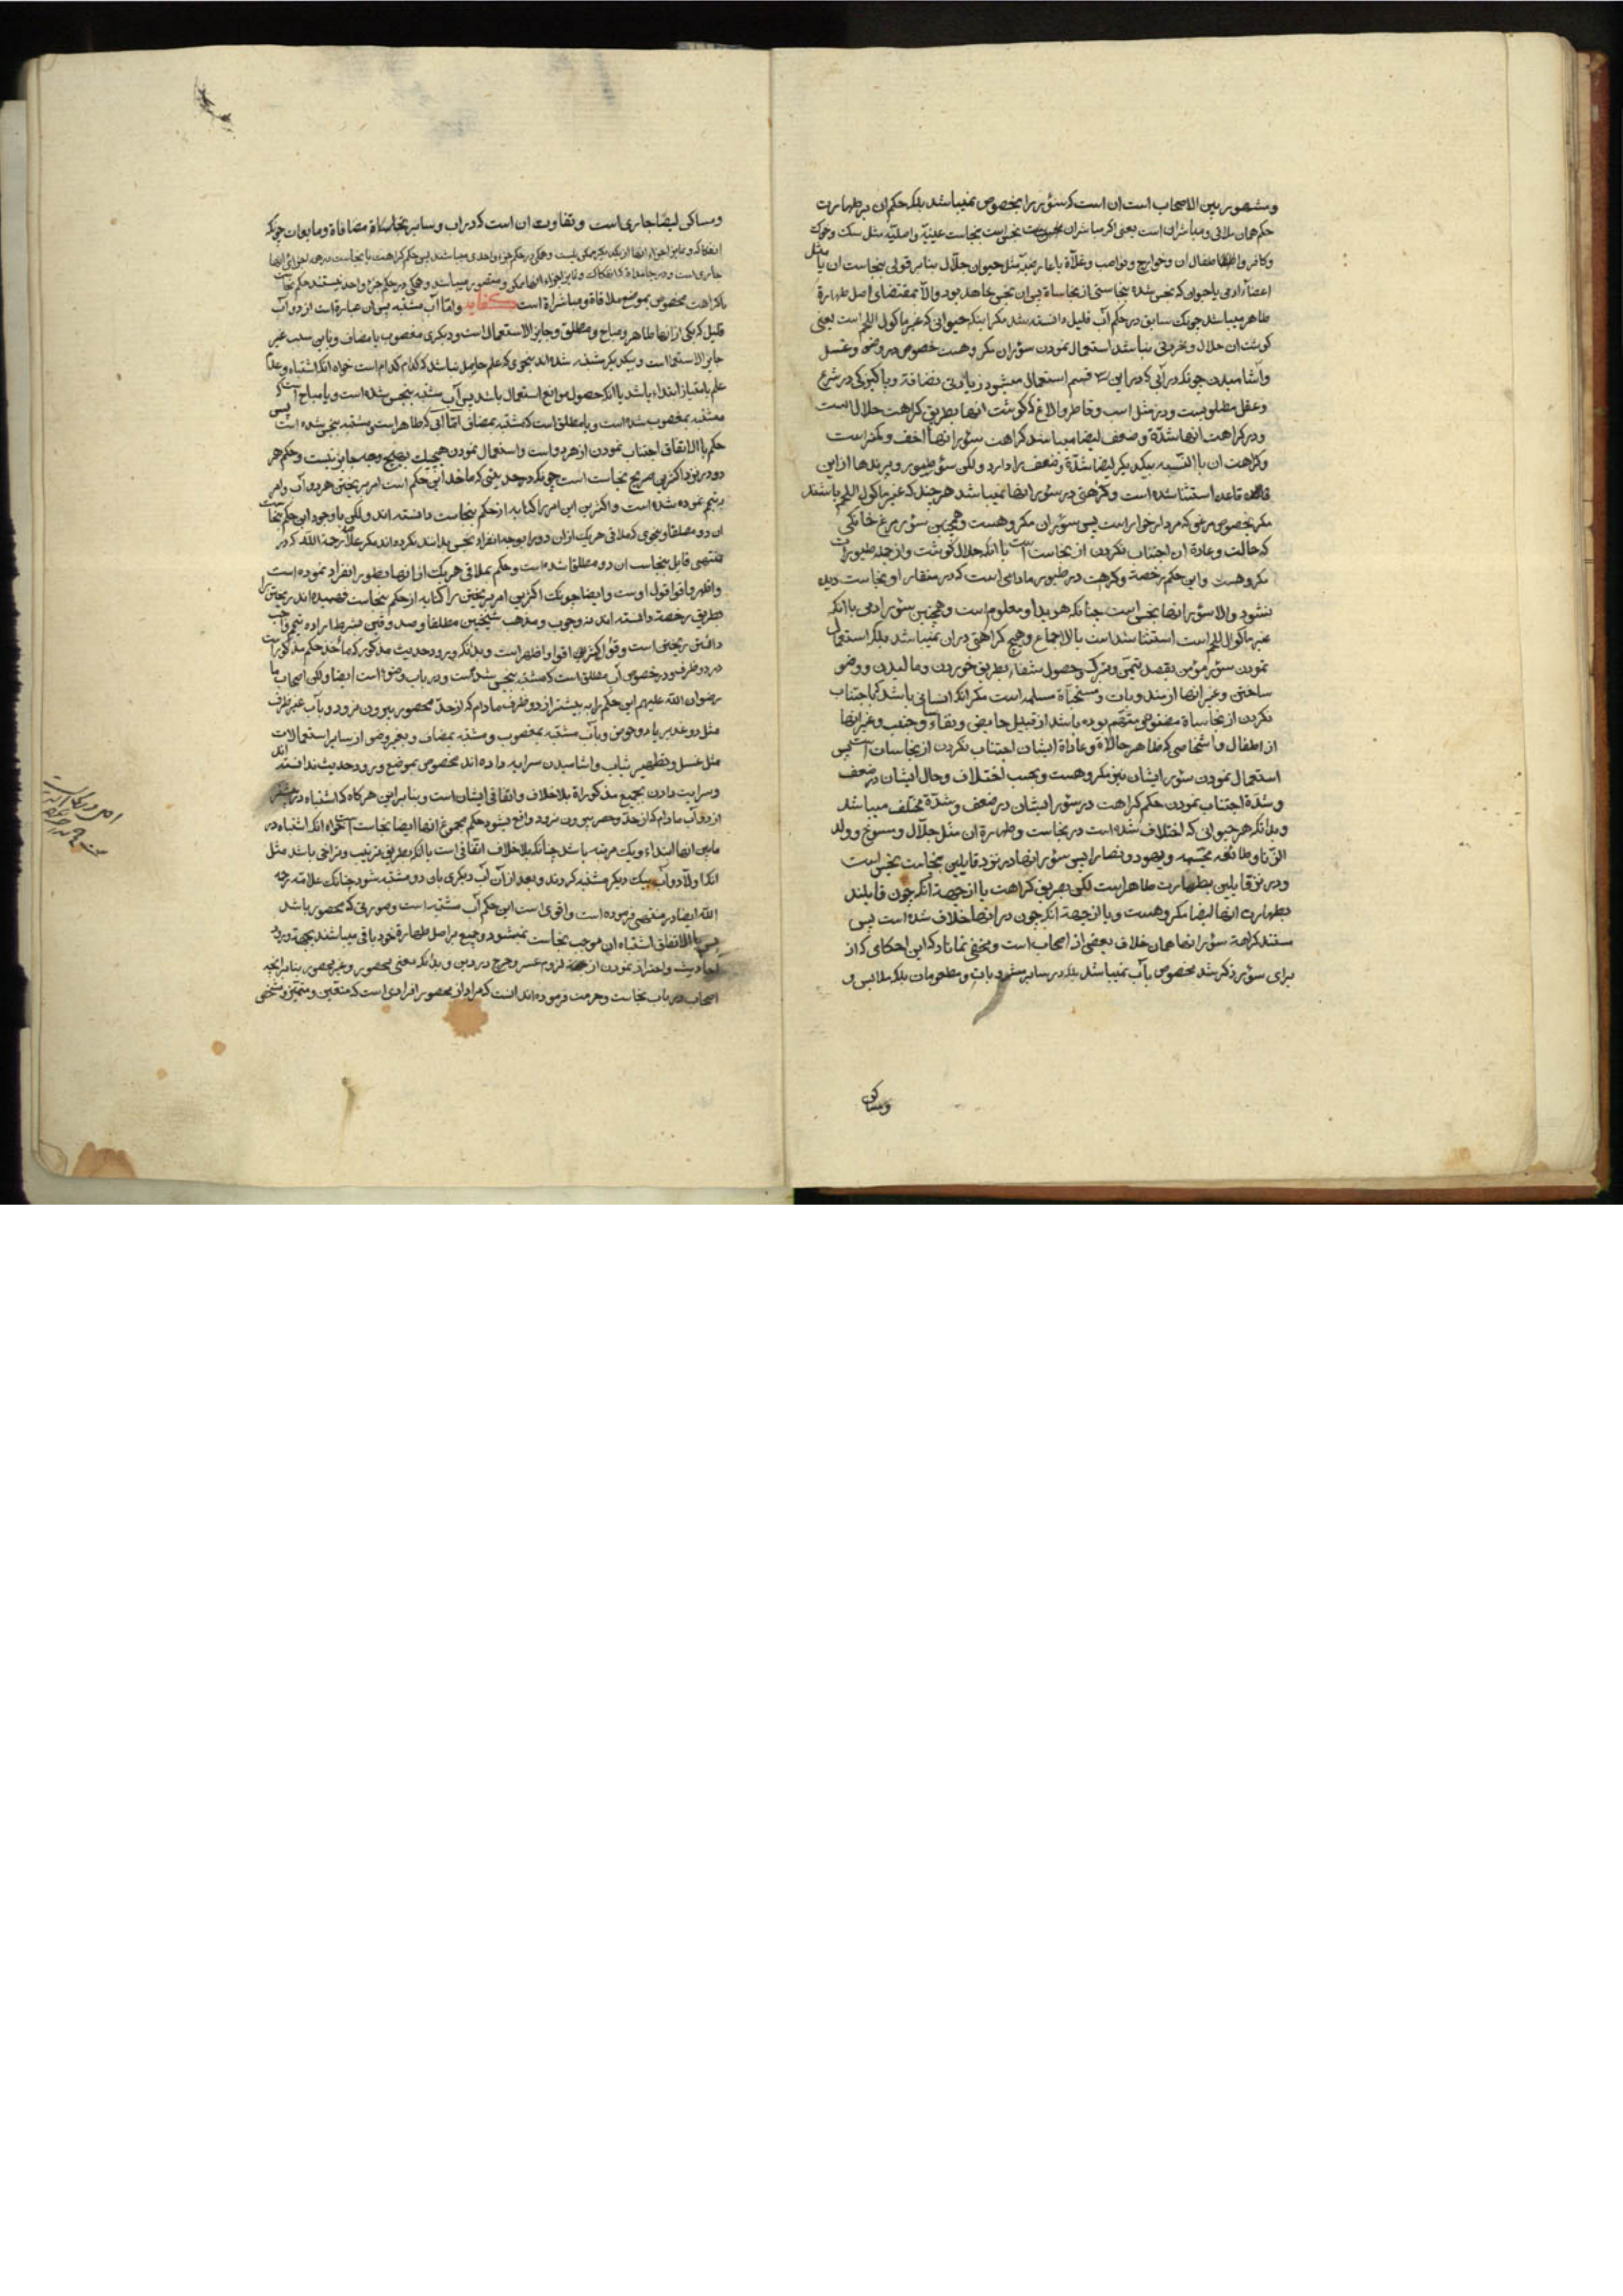 ومشهور بین الاصحاب است ان است که سؤر را بخصوص نمیباشد بلکه حکم ان در طهارت
حکم همان ملاقی ومباشران است یعنی اکر مباشران نجس است بنجاست عینیّه واصلیّه مثل سک وخوک
وکافر واطفال ان وخوارج ونواصب وغلاة یا عارضیّه مثل حیوان جلّال بنابر قولی بنجاست ان یا مثل
اعضاٴ ادمی یا حیوان که نجس شده بنجاستی از نجاساة پس ان نجس خواهد بود والّا بمقتضای اصل طهارة
طاهر میباشد چونک سابق در حکم آب قلیل دانسته شد مکر اینکه حیوانی که غیر ماکول اللحم است یعنی
کوشت ان حلال وخوردنی نباشد استعمال نمودن سؤر ان مکروهست خصوص در وضو وغسل
واشامیدن چونکه در آبی که در این قسم استعمال میشود زیادتی نضافة وپاکیزکی در شرع
وعقل مطلوبست ودر مثل اسب وقاطر والاغ که کوشت انها بطریق کراهت حلال است
ودر کراهت انها شدّة وضعف ایضا میباشد کراهت سؤر انها اخف وکمتر است
وکراهت ان با النّسبه بیکدیکر ایضا شدّة وضعف را دارد ولکن سؤر طیور وپرندها از این
قاعده استثنا شده است وکراهتی در سؤر انها نمیباشد هرچند که غیر ماکول اللحم باشند
مکر بخصوص مرغی که مردار خوار است پس سؤر ان مکروهست وهمچنین سؤر مرغ خانکی
که حالت وعادة ان اجتناب نکردن از نجاست است با انکه حلال کوشت واز جمله طیور است
مکروهست واین حکم رخصة وکراهت در طیور مادامی است که در منقار او نجاست دیده
نشود والا سؤر انها نجس است چنانکه هویدا ومعلوم است وهمچنین سؤر ادمی با انکه
غیر ماکول اللحم است استثنا شد است بالاجماع وهیچ کراهتی در ان نمیباشد بلکه استعمال
نمودن سؤر مؤمن بقصد تیمّن وتبرّک وحصول شفاء بطریق خوردن ومالیدن ووضو
ساختن وغیر انها از مندوبات ومستحبّاة مسلمه است مکر انکه انسانی باشد که باجتناب
نکردن از نجاساة مضنون ومتّهم بوده باشد از قبیل حایض ونفاء وجنب وغیر انها
از اطفال واشخاصی که ظاهر حالاة وعاداة ایشان اجتناب نکردن از نجاسات است پس
استعمال نمودن سؤر ایشان نیز مکروهست وبحسب اختلاف وحال ایشان در ضعف
وشدّة اجتناب نمودن حکم کراهت در سؤر ایشان در ضعف وشدّة مختلف میباشد
وبدانکه هر حیوانی که اختلاف شده است در نجاست وطهارة ان مثل جلّال ومسوخ وولد
الزّنا وطائفه مجسّمه ویهود ونصارا پس سؤر انها در نزد قایلین بنجاست نجس است
ودر نزد قایلین بطهارت طاهر است لکن بطریق کراهت یا از جهة انکه چون قایلند
بطهارت انها ایضا مکروهست ویا از جهة انکه چون در انها خلاف شده است پس
مستند کراهة سؤر انها همان خلاف بعضی از اصحاب است ومخفی نماناد که این احکامی که از
برای سؤر ذکر شد مخصوص بآب نمیباشد بلکه در سایر مشروبات ومطعومات بلکه ملابس و
ومساکن
ومساکن ایضا جاری است وتفاوت ان است که در اب وسایر نجاساة مضافاة ومایعات چونکه
جاری است ودر جامداة که انفکاک وتمایز اجزاء انها ممکن ومتصور میباشد وهمکی در حکم جزء واحد نیستند حکم نجاست
یا کراهت مخصوص بموضع ملاقاة ومباشراة است کفایه وامّا آب مشتبه پس ان عبارة است از دو آب
قلیل که یکی از انها طاهر ومباح ومطلق وجایز الاستعمال است ودیکری مغصوب یا مضاف ویا بی سبب غیر
جایز الاستعما است وبیکدیکر مشتبه شده اند بنحوی که علم حاصل نباشد که کدام کدام است خواه انکه اشتباه وعدم
علم بامتیاز ابتداء باشد یا انکه حصول موانع استعمال باشد پس آب مشتبه بنجس شده است ویا مباح است که
مشتبه بمغصوب شده است ویا مطلق است که مشتبه بمضاف امّا آبی که طاهر است ومشتبه بنجس شده است پس
حکم با الاتفاق اجتناب نمودن از هر دو است واستعمال نمودن هیچیک بهیچ وجه جایز نیست وحکم هر
دو در نزد اکثرین صریح نجاست است چونکه در حدیثی که ماخذ این حکم است امر بریختن هر دو آب وامر
بتیمم نموده شده است واکثرین این امر را کنایه از حکم بنجاست دانسته اند ولکن با وجود این حکم نجاست
ان دو مطلقا وبنحوی که ملاقی هریک از ان دو را بوجه انفراد نجس بدانند نکرده اند مکر علّامه رحمة الله که در
منتهی قایل بنجاست ان دو مطلقا شده است وحکم بملاقی هریک از انها بطور انفراد نموده است
واظهر واقوا قول اوست وایضا چونک اکثرین امر بریختن را کنایه از حکم بنجاست فهمیده اند ریختن را
بطریق رخصة دانسته اند نه وجوب ومذهب شیخین مطلقا وصدوقین بشرط اراده تیمم واجب
دانستن ریختن است وقول اکثرین اقوا واظهر است وبدانکه ورود حدیث مذکور که ماخذ حکم مذکور است
در دو ظرف ودر خصوص آب مطلق است که مشتبه بنجس شد است ودر باب وضو است ایضا ولکن اصحاب ما
رضوان الله علیهم این حکم را به بیشتر از دو ظرف مادام که از حدّ محصور بیرون نرود وبآب غیر ظرف
مثل دو غدیر یا دو حوض وبآب مشتبه بمغصوب ومشتبه بمضاف وبغیر وضو از سایر استعمالات
مثل غسل وتطهیر ثیاب واشامیدن سرایه داده اند مخصوص بموضع ورود حدیث ندانسته اند
وسرایت دادن بجمیع مذکوراة بلاخلاف واتفاقی ایشان است وبنابراین هرکاه که اشتباه در بیشتر
از دو آب مادام که از حدّ وحصر بیرون نرود واقع بشود حکم مجموع انها ایضا نجاست است خواه انکه اشتباه در
مابین انها ابتداء ویک مرتبه باشد چنانکه بلاخلاف اتفاقی است یا انکه بطریق ترتیب وتراخی باشد مثل
انکه اولّا دو آب بیک دیکر مشتبه کردند وبعد از آن آب دیکری بان دو مشتبه شود چنانکه علامه رحمه
الله ایضا در منتهی فرموده است واقوی است این حکم آب مشتبه است وصورتی که محصور باشد
پس با الاتفاق اشتباه ان موجب نجاست نمیشود وجمیع بر اصل طهارة خود باقی میباشند بجهة ورود
احادیث واحتراز نمودن از جهة لزوم عسر وحرج در دین وبدانکه معنی محصور وغیر محصور بنابر انچه
اصحاب در باب نجاست وحرمت فرموده اند انست که مراد از محصور افرادی است که متعین ومتمیّز ومشخص